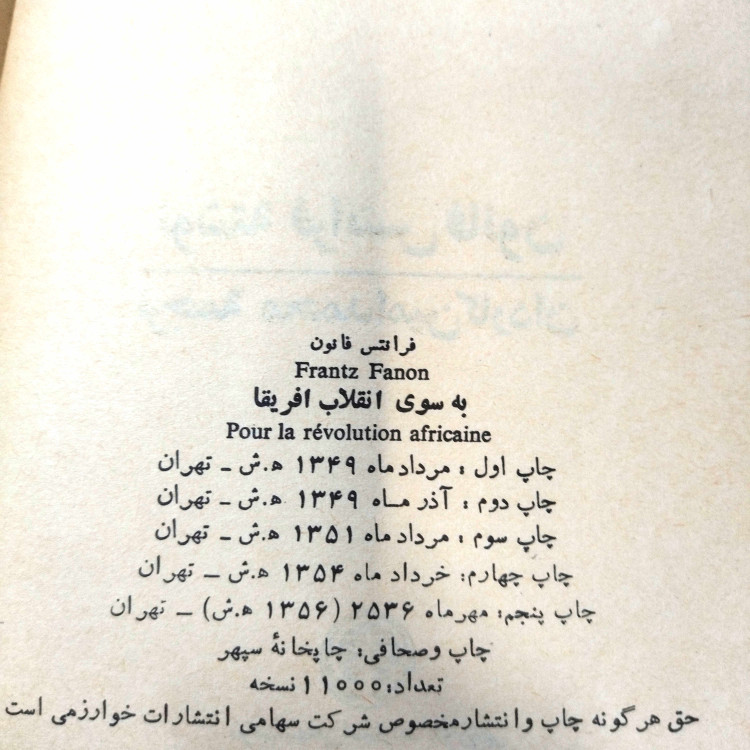 فرانتس فانون
Frantz Fanon
به سوی انقلاب افریقا
Pour la révolution africaine
چاپ اول : مرداد ماه ۱۳۴۹ ه.ش – تهران
چاپ دوم : آذر مــاه ۱۳۴۹ ه.ش – تهران
چاپ سوم : مرداد ماه ۱۳۵۱ ه.ش – تهران
چاپ چهارم: خرداد ماه ۱۳۵۴ ه.ش – تهران
چاپ پنجم: مهرماه ۲۵۳۶ (۱۳۵۶ ه.ش) – تهران
چاپ وصحافی: چاپخانهٔ سپهر
تعداد: ۱۱۰۰۰ نسخه
حق هرگونه چاپ و انتشار مخصوص شرکت سهامی انتشارات خوارزمی است